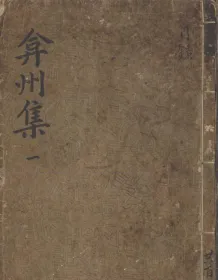 弇州集
一